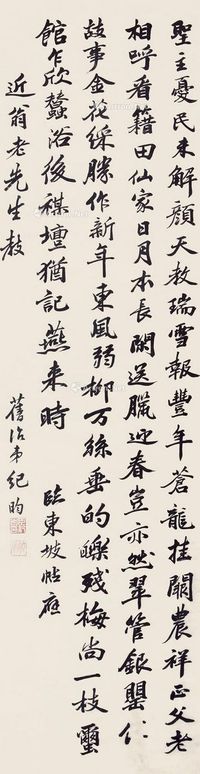 聖主憂民未解顏天教瑞雪報豐年蒼龍挂闕農祥正父老
相呼看籍田仙家日月本長閑送臘迎春豈亦然翠管銀罌仁
故事金花綵勝作新年東風弱柳万絲垂的皪殘梅尚一枝璽
館乍欣蠶浴後禖壇猶記燕來時 臨東坡帖應
近翁老先生教
舊治弟紀昀